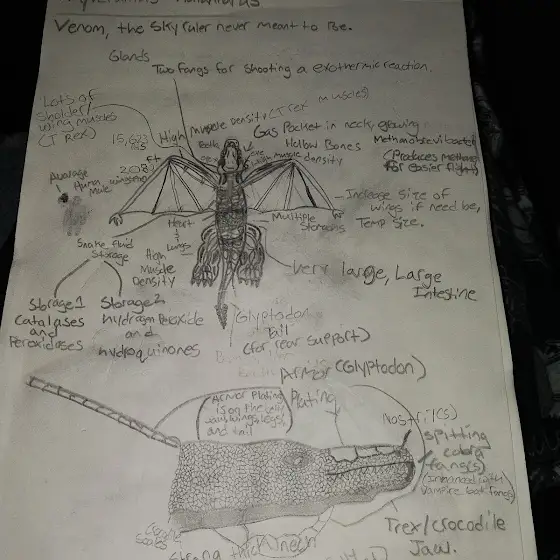 Venom, the Sky ruler never meant to Be.
Glands
Two fangs for shooting a exothermic reaction.
Lots of
sholder/
wing muscles
(T Rex)
15,623
lbs
High Muscle Density (T Rex muscles)
Gas Pocket in neck, growing
Methanobrevibacter
(Produces methane
for easier flight)
Hollow Bones
High muscle
density
208
ft
wingspan
Average
Human
Male
Increase Size of
wings if need be,
Temp Size.
Multiple
Stomachs
Heart
+
Lungs
Snake fluid
Storage
High
Muscle
Density
Very large, Large
Intestine
Storage 1
Catalases
and
Peroxidases
Storage 2
hydrogen Peroxide
and
hydroquinones
Glyptodon
Tail
(for rear support)
Armor (Glyptodon)
Plating
Armor Plating
is on the belly,
wings, legs,
and tail
Nostril(s)
spitting
cobra
fang(s)
vampire bat fangs)
Trex/crocodile
Jaw.
Scales
Strong thick neck